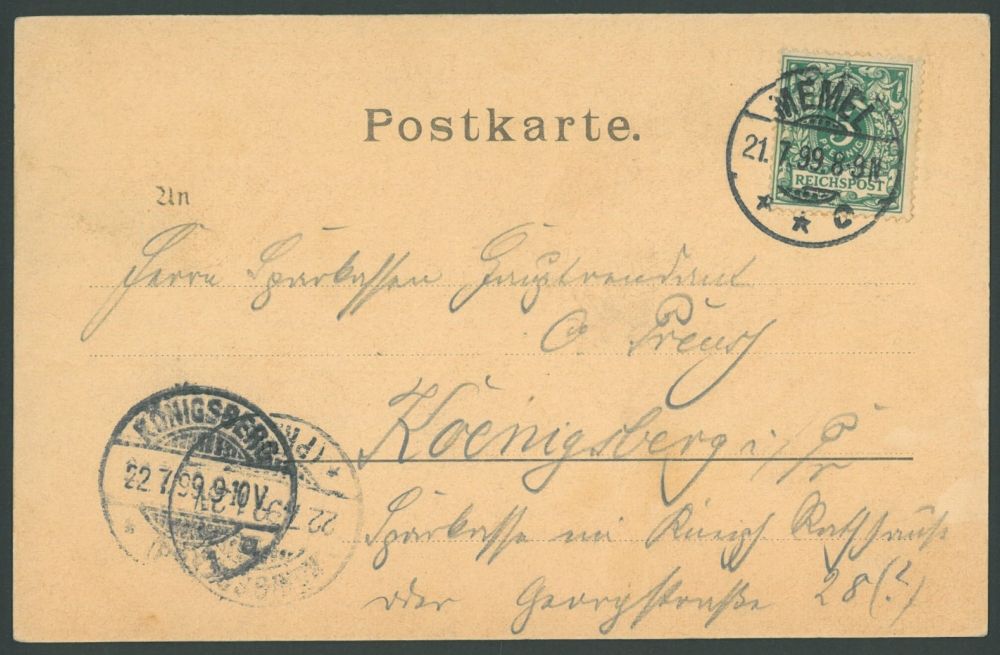 Postkarte.
MEMEL
21. 7. 99. 8-9 N
* * C
5
PFENNIG
REICHSPOST
An
Herrn Sparkassen Hauptrendant
C. Preusz
Koenigsberg i/Pr
Sparkasse im Kneiph Rathhause
oder Georgstraße 28 (?)
KÖNIGSBERG
22. 7. 99. 9-10 V
(PR.)
22